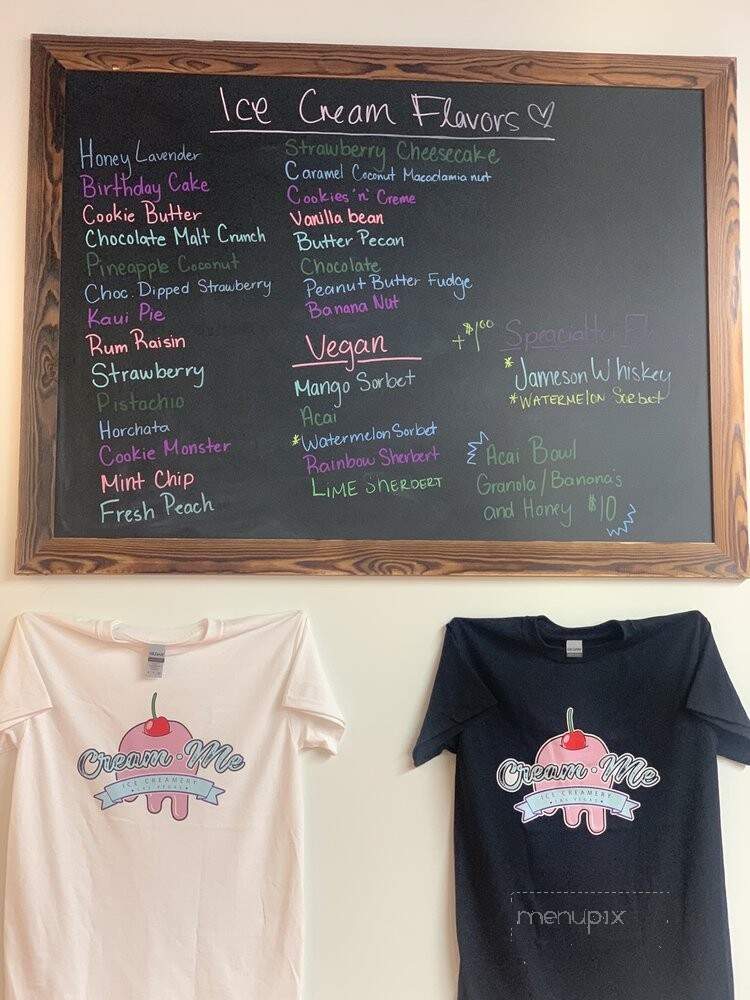 Ice Cream Flavors
Honey Lavender
Birthday Cake
Cookie Butter
Chocolate Malt Crunch
Pineapple Coconut
Choc. Dipped Strawberry
Kaui Pie
Rum Raisin
Strawberry
Pistachio
Horchata
Cookie Monster
Mint Chip
Fresh Peach
Strawberry Cheesecake
Caramel Coconut Macadamia nut
Cookies 'n' Creme
Vanilla bean
Butter Pecan
Chocolate
Peanut Butter Fudge
Banana Nut
Vegan
Mango Sorbet
Acai
*Watermelon Sorbet
Rainbow Sherbert
LIME SHERBERT
+$1.00
*Jameson Whiskey
*WATERMELON Sorbet
Acai Bowl
Granola/Banana's
and Honey $10
Cream·Me
ICE CREAMERY
LAS VEGAS
Cream·Me
ICE CREAMERY
LAS VEGAS
menupix